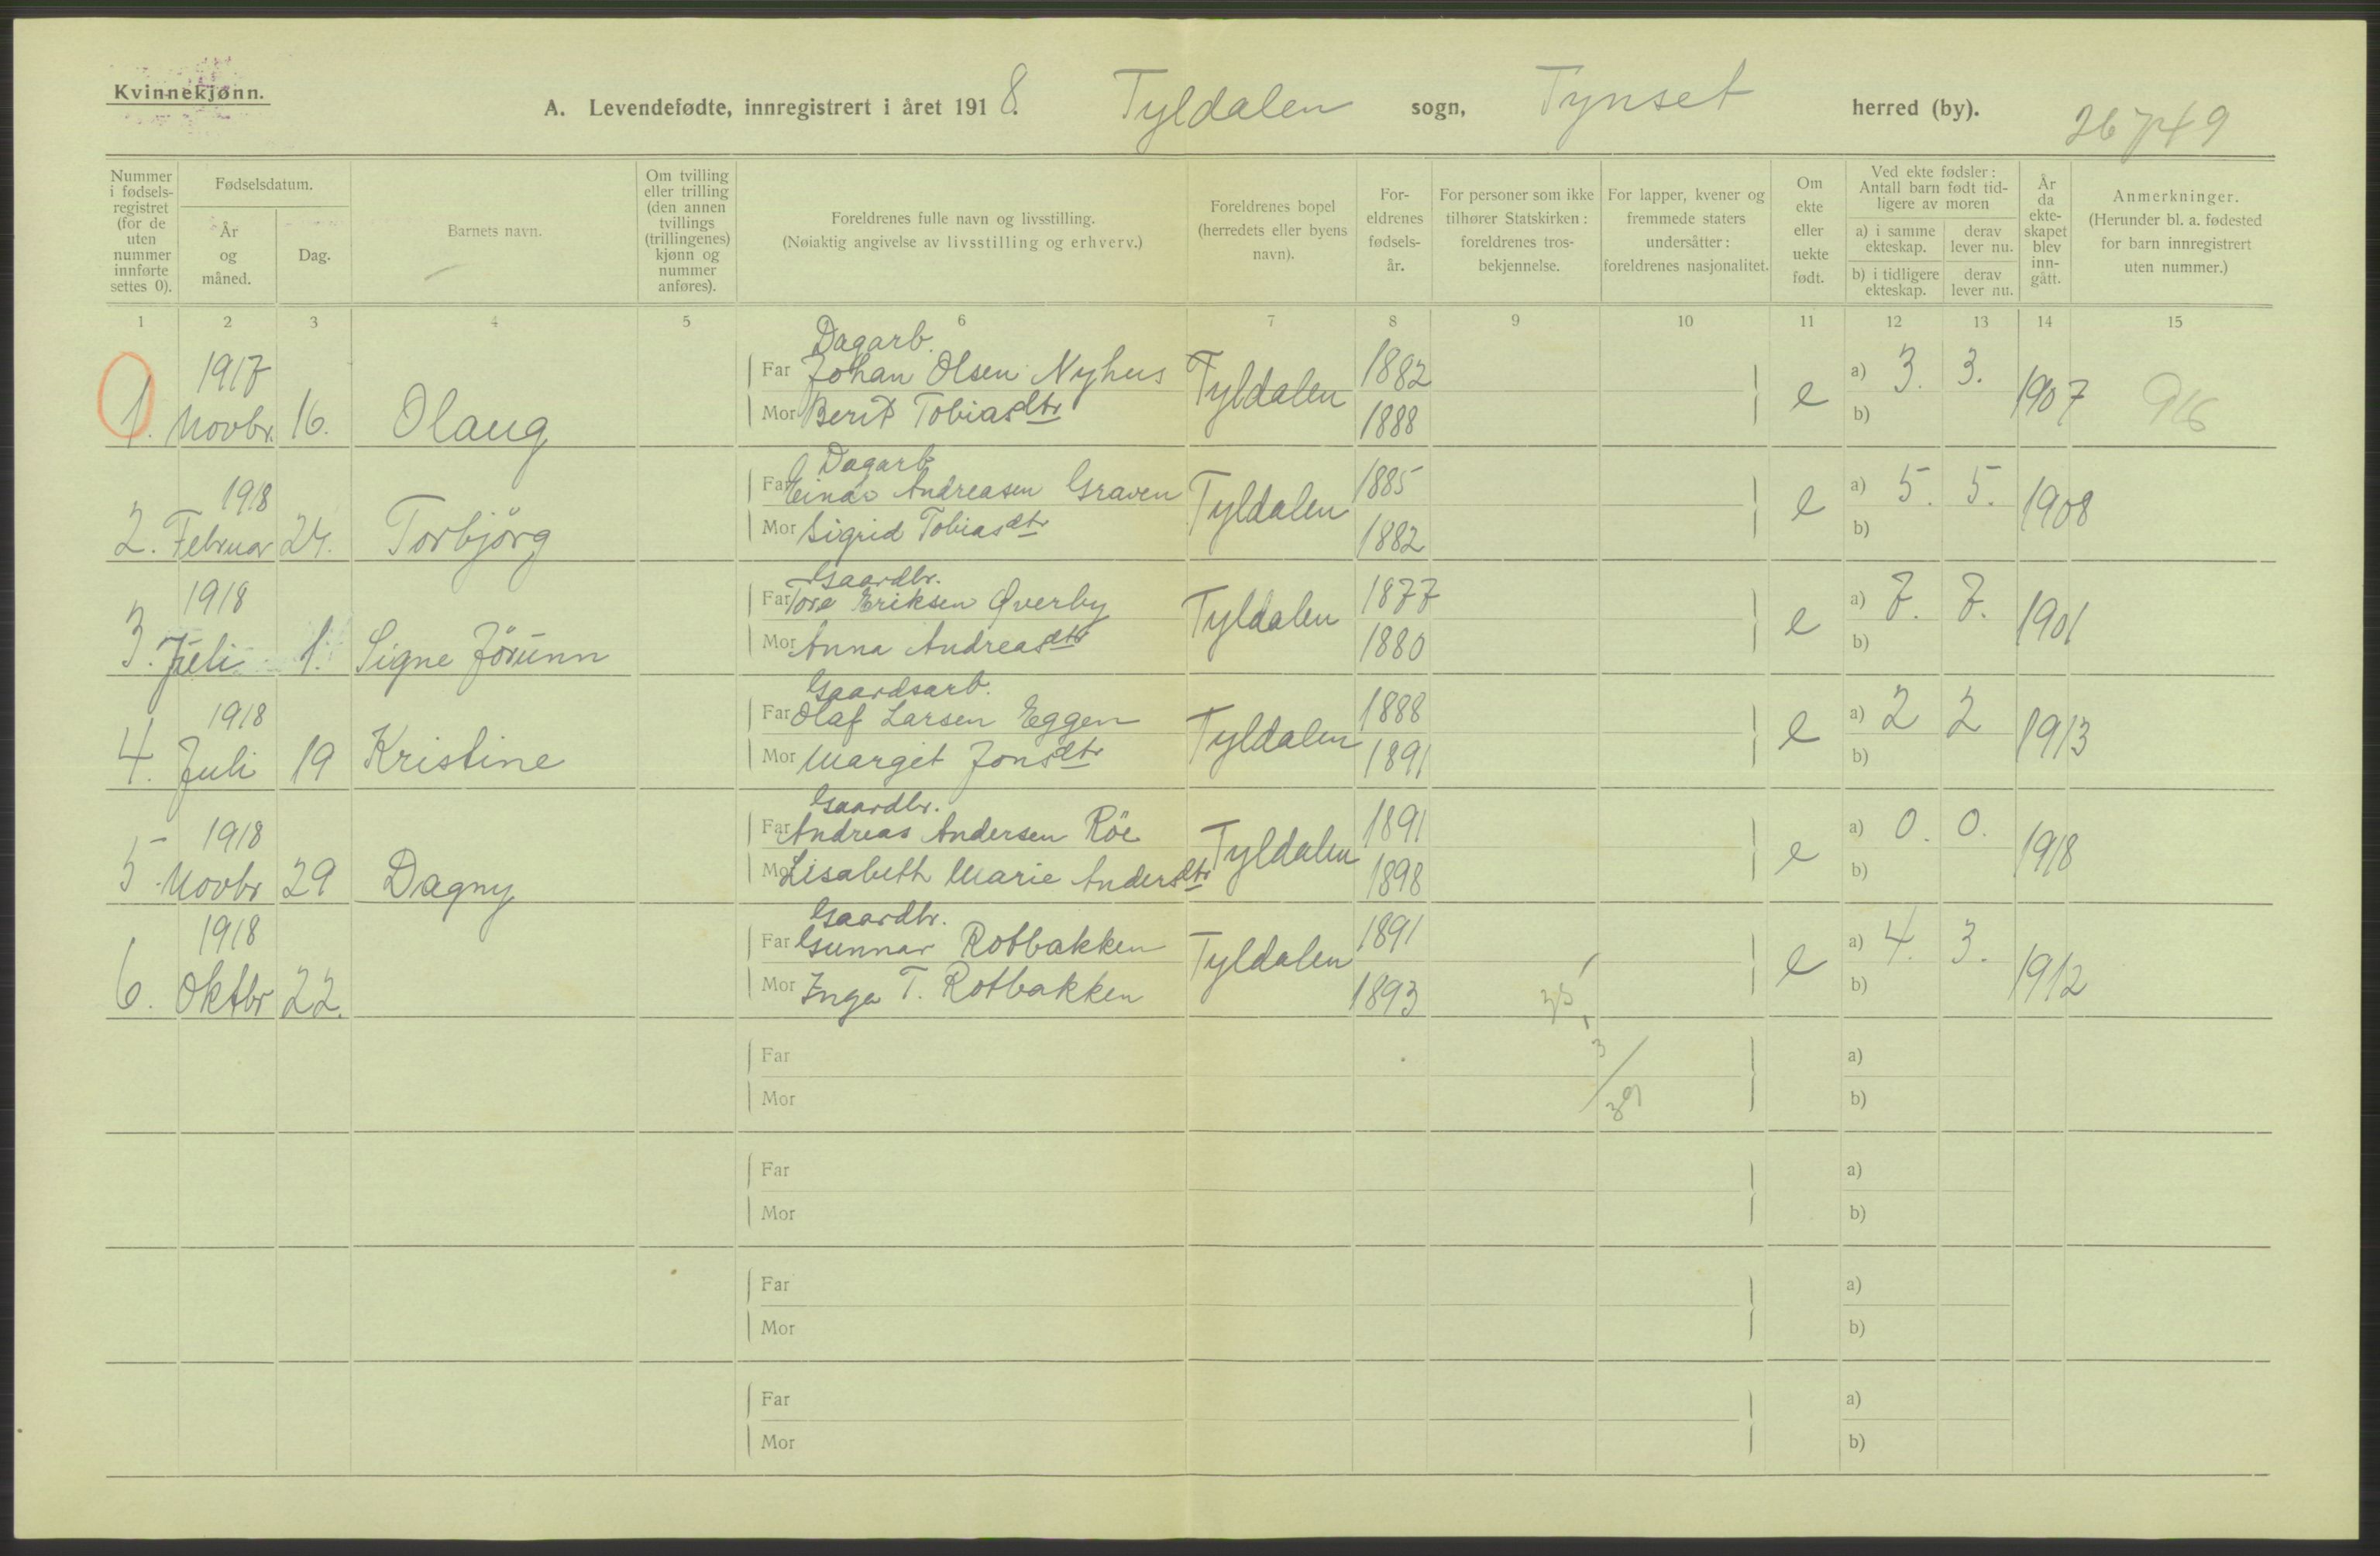 Kvinnekjønn.
A. Levendefødte, innregistrert i året 1918. Tyldalen sogn, Tynset herred (by). 26749
Nummer i fødsels-registret (for de uten nummer innførte settes 0).
Fødselsdatum.
År og måned.
Dag.
Barnets navn.
Om tvilling eller trilling (den annen tvillings (trillingenes) kjønn og nummer anføres).
Foreldrenes fulle navn og livsstilling. (Nøiaktig angivelse av livsstilling og erhverv.)
Foreldrenes bopel (herredets eller byens navn).
For-eldrenes fødsels-år.
For personer som ikke tilhører Statskirken: foreldrenes tros-bekjennelse.
For lapper, kvener og fremmede staters undersåtter: foreldrenes nasjonalitet.
Om ekte eller uekte født.
Ved ekte fødsler: Antall barn født tid-ligere av moren
a) i samme ekteskap. derav lever nu.
b) i tidligere ekteskap. derav lever nu.
År da ekte-skapet blev inn-gått.
Anmerkninger. (Herunder bl. a. fødested for barn innregistrert uten nummer.)
1 2 3 4 5 6 7 8 9 10 11 12 13 14 15
Dagarb.
1917 Far Johan Olsen Nyhus Tyldalen 1882 e a) 3. 3. 1907 916
1. Novbr. 16. Olaug Mor Berit Tobiasdtr 1888 b)
Dagarb.
1918 Far Einar Andreasen Graven Tyldalen 1885 e a) 5. 5. 1908
2. Februar 24. Torbjörg Mor Sigrid Tobiasdtr 1882 b)
Gaardbr.
1918 Far Tore Eriksen Øverby Tyldalen 1877 e a) 7. 7. 1901
3. Juli 1. Signe Jörunn Mor Anna Andreasdtr 1880 b)
Gaardsarb.
1918 Far Olaf Larsen Eggen Tyldalen 1888 e a) 2 2 1913
4. Juli 19 Kristine Mor Marget Jonsdtr 1891 b)
Gaardbr.
1918 Far Andreas Andersen Röe Tyldalen 1891 e a) 0. 0. 1918
5 Novbr 29 Dagny Mor Lisabeth Marie Andersdtr 1898 b)
Gaardbr.
1918 Far Gunnar Rotbakken Tyldalen 1891 e a) 4. 3. 1912
6. Oktbr 22. Mor Inga T. Rotbakken 1893 b)
Far a)
3
39
Mor b)
Far a)
Mor b)
Far a)
Mor b)
Far a)
Mor b)